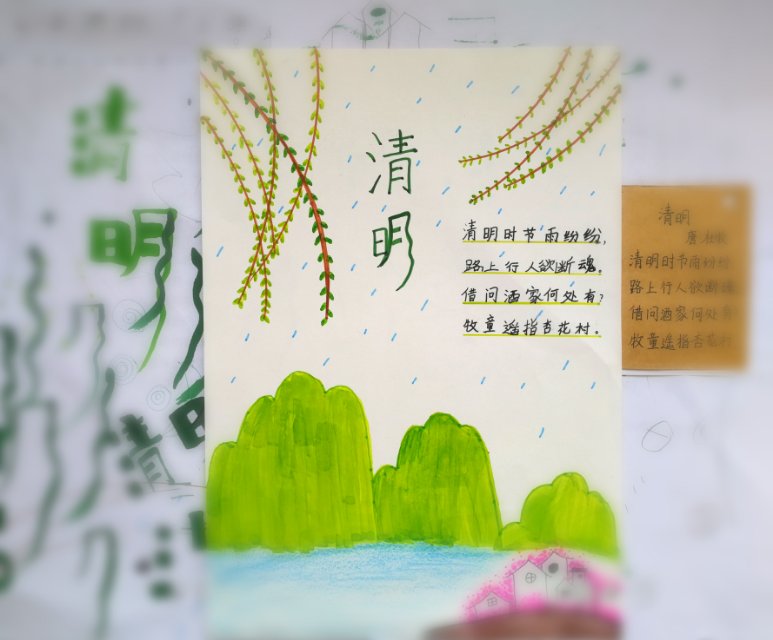 清明
清明时节雨纷纷,
路上行人欲断魂。
借问酒家何处有?
牧童遥指杏花村。
清明
唐 杜牧
清明时节雨纷纷
路上行人欲断魂
借问酒家何处有?
牧童遥指杏花村
清
明
清
明